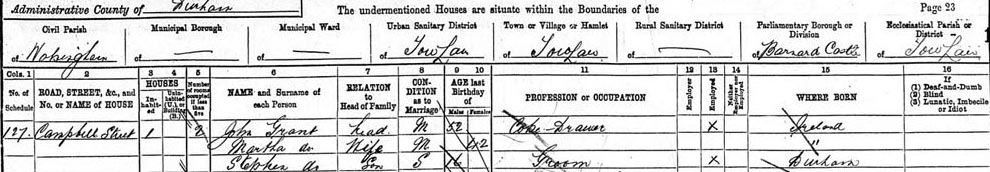 Administrative County of Durham The undermentioned Houses are situate within the Boundaries of the Page 23
Civil Parish Municipal Borough Municipal Ward Urban Sanitary District Town or Village or Hamlet Rural Sanitary District Parliamentary Borough or Division Ecclesiastical Parish or District
of Wolsingham of of of Tow Law of Tow Law of of Barnard Castle of Tow Law
Cols. 1 2 3 4 5 6 7 8 9 10 11 12 13 14 15 16
No. of Schedule ROAD, STREET, &c., and No. or NAME of HOUSE HOUSES Inhabited Uninhabited (U.), or Building (B.) Number of rooms occupied if less than five NAME and Surname of each Person RELATION to Head of Family CONDITION as to Marriage AGE last Birthday of Males Females PROFESSION or OCCUPATION Employer Employed Neither WHERE BORN If (1) Deaf-and-Dumb (2) Blind (3) Lunatic, Imbecile or Idiot
127 Campbell Street 1 2 John Grant head M 52 Coke Drawer X Ireland
Martha do Wife M 42 "
Stephen do Son S 16 Groom X Durham